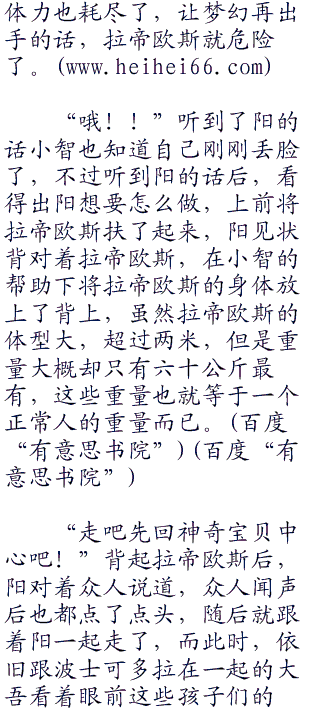 体力也耗尽了，让梦幻再出
手的话，拉帝欧斯就危险
了。(www.heihei66.com)
“哦！！”听到了阳的
话小智也知道自己刚刚丢脸
了，不过听到阳的话后，看
得出阳想要怎么做，上前将
拉帝欧斯扶了起来，阳见状
背对着拉帝欧斯，在小智的
帮助下将拉帝欧斯的身体放
上了背上，虽然拉帝欧斯的
体型大，超过两米，但是重
量大概却只有六十公斤最
有，这些重量也就等于一个
正常人的重量而已。(百度
“有意思书院”)(百度“有
意思书院”)
“走吧先回神奇宝贝中
心吧！”背起拉帝欧斯后，
阳对着众人说道，众人闻声
后也都点了点头，随后就跟
着阳一起走了，而此时，依
旧跟波士可多拉在一起的大
吾看着眼前这些孩子们的